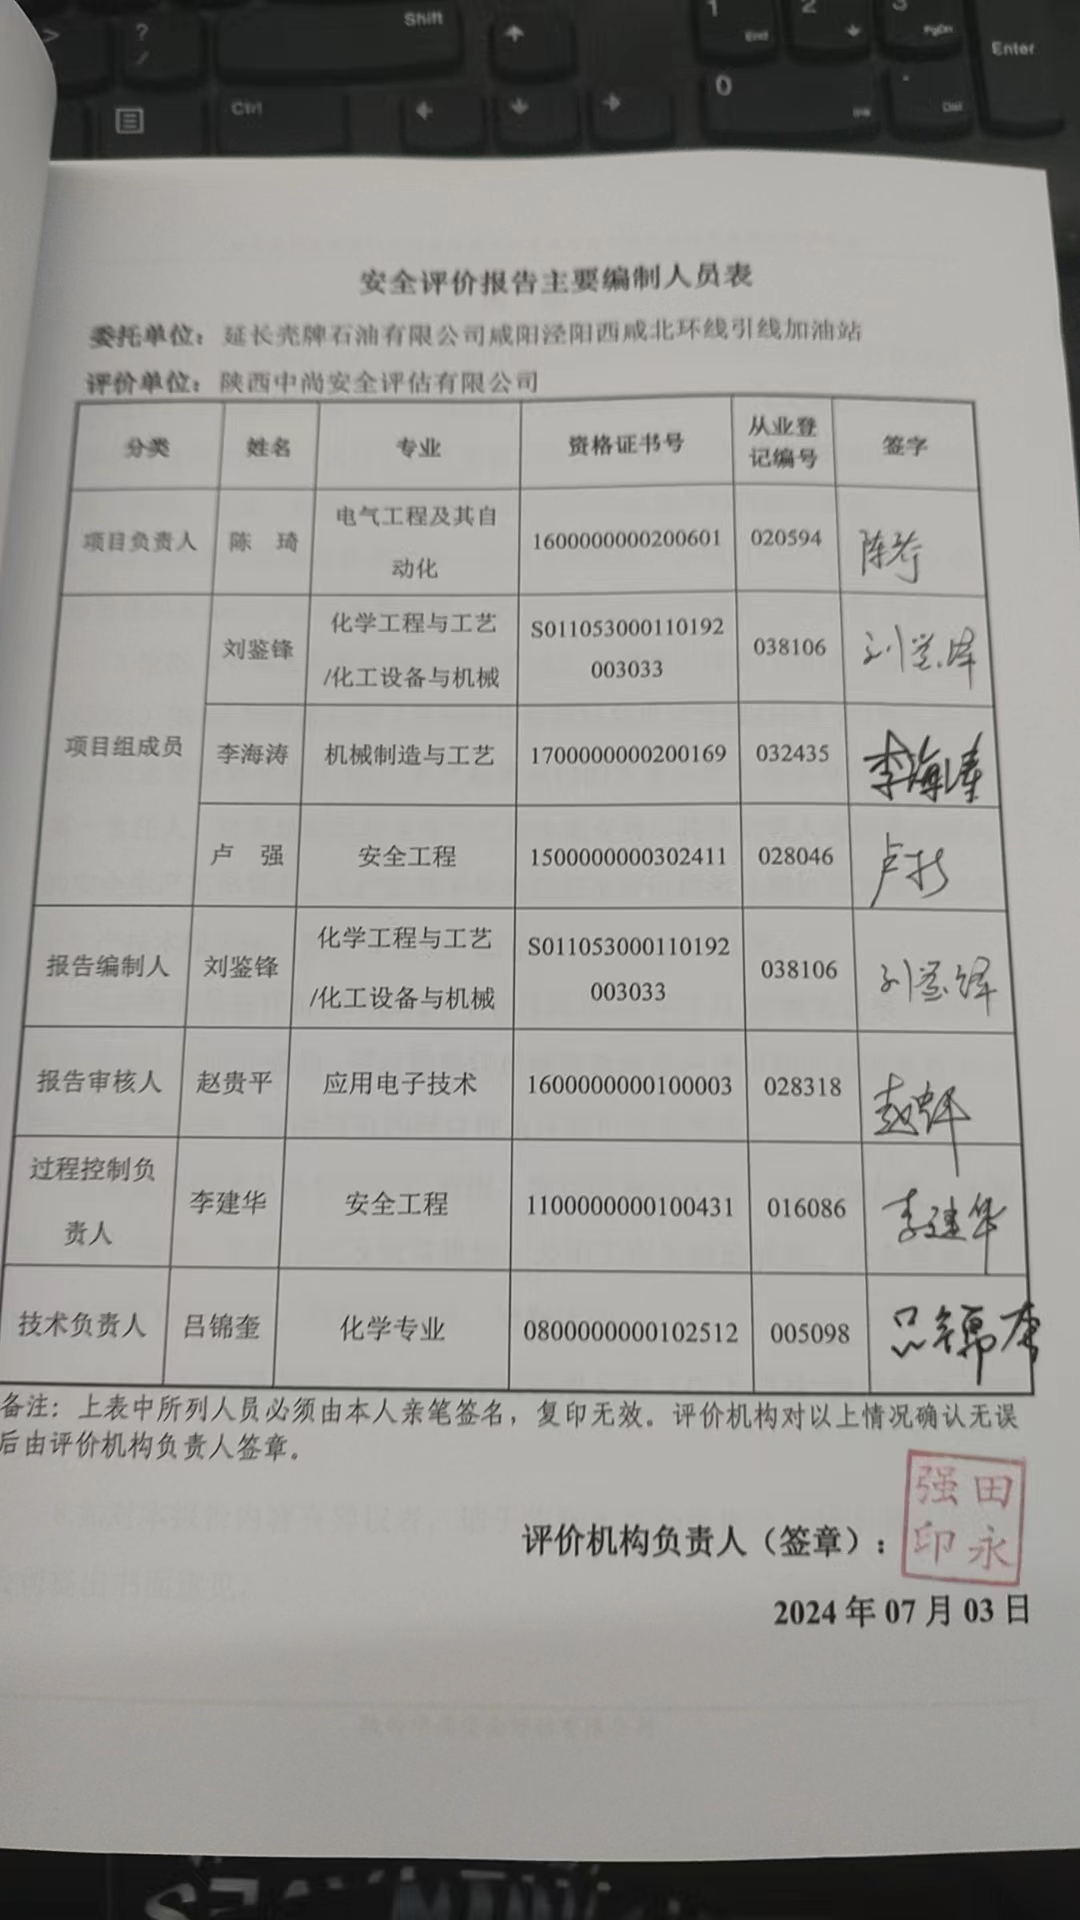 ?
/
Shift
1
End
2
3
PgDn
Enter
Ctrl
0
Ins
.
Del
安全评价报告主要编制人员表
委托单位：延长壳牌石油有限公司咸阳泾阳西咸北环线引线加油站
评价单位：陕西中尚安全评估有限公司
分类 姓名 专业 资格证书号 从业登记编号 签字
项目负责人 陈 琦 电气工程及其自动化 1600000000200601 020594 陈琦
项目组成员 刘鉴锋 化学工程与工艺/化工设备与机械 S011053000110192003033 038106 刘鉴锋
李海涛 机械制造与工艺 1700000000200169 032435 李海涛
卢 强 安全工程 1500000000302411 028046 卢强
报告编制人 刘鉴锋 化学工程与工艺/化工设备与机械 S011053000110192003033 038106 刘鉴锋
报告审核人 赵贵平 应用电子技术 1600000000100003 028318 赵贵平
过程控制负责人 李建华 安全工程 1100000000100431 016086 李建华
技术负责人 吕锦奎 化学专业 0800000000102512 005098 吕锦奎
备注：上表中所列人员必须由本人亲笔签名，复印无效。评价机构对以上情况确认无误
后由评价机构负责人签章。
评价机构负责人（签章）：
田永强印
2024 年 07 月 03 日